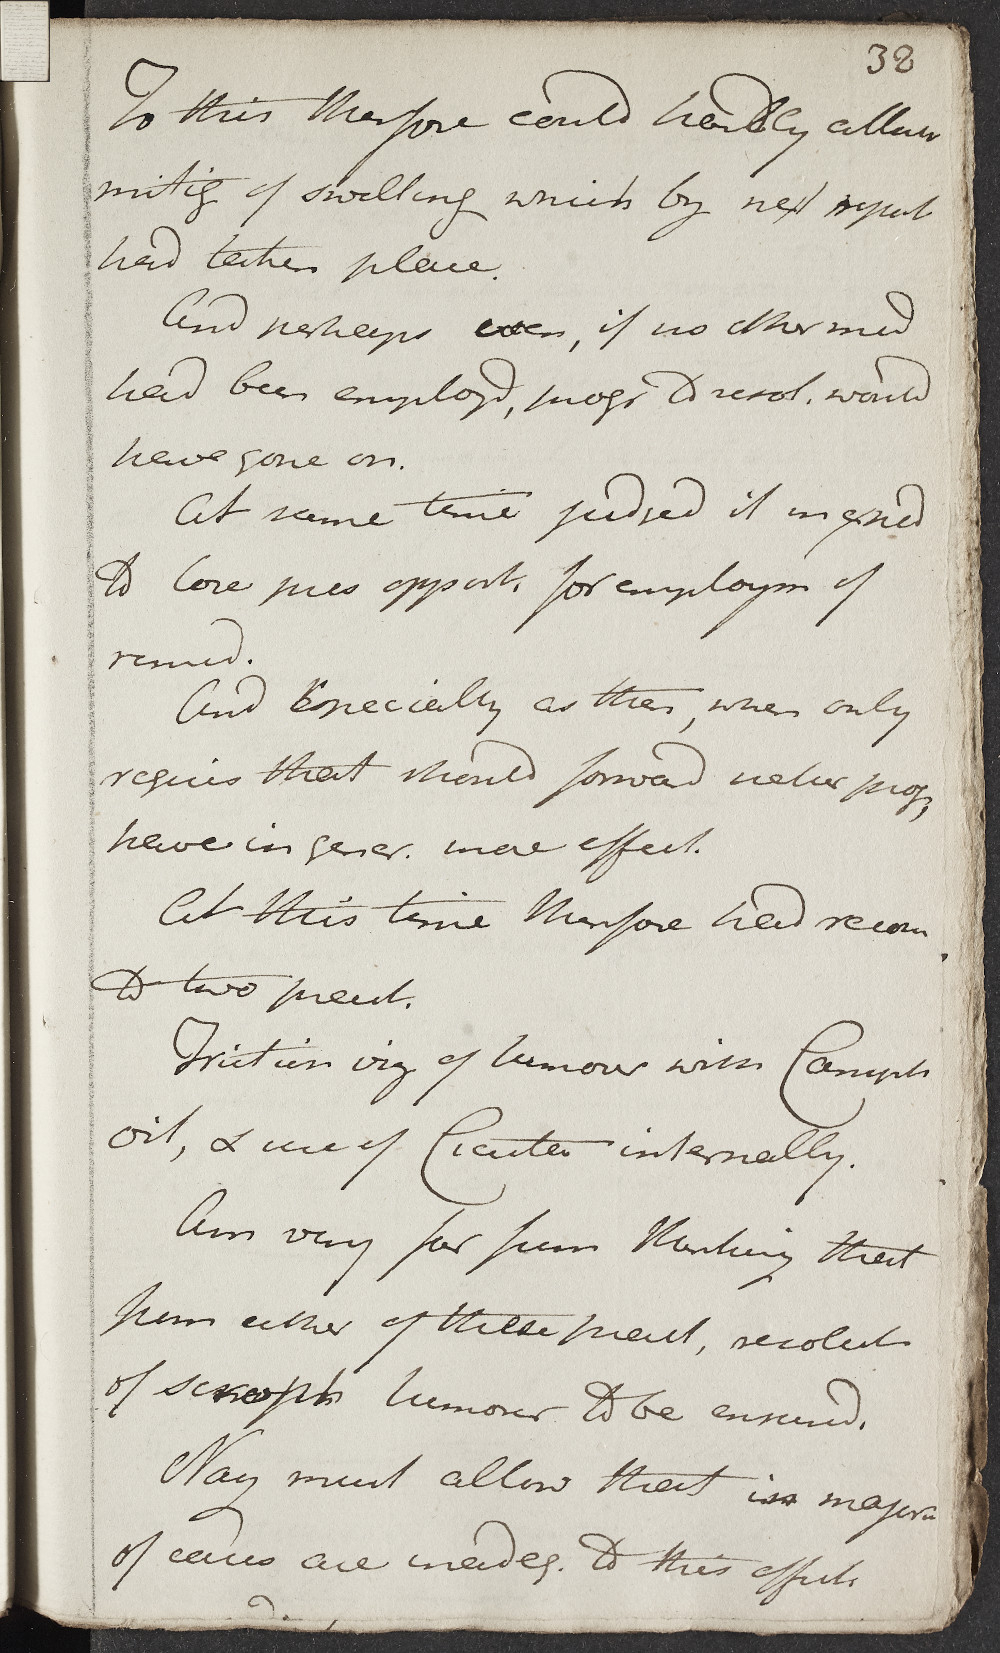 38
To this therefore could hardly allow
mitig of swelling which by next report
had taken place.
And perhaps even, if no other med
had been employd, progr to resol. would
have gone on.
At same time judged it inexped
to lose pres opport. for employm of
remed.
And Especially as then, when only
requires that should forward natur prog,
have in gener. more effect.
At this time therefore had recour
to two pract.
Friction vig of tumour with Camph
oil, & use of Cicuta internally.
Am very far from thinking that
from either of these pract, resolut
of scroph tumour to be ensured.
Nay must allow that in majori
of cases are inadeq. to this effect